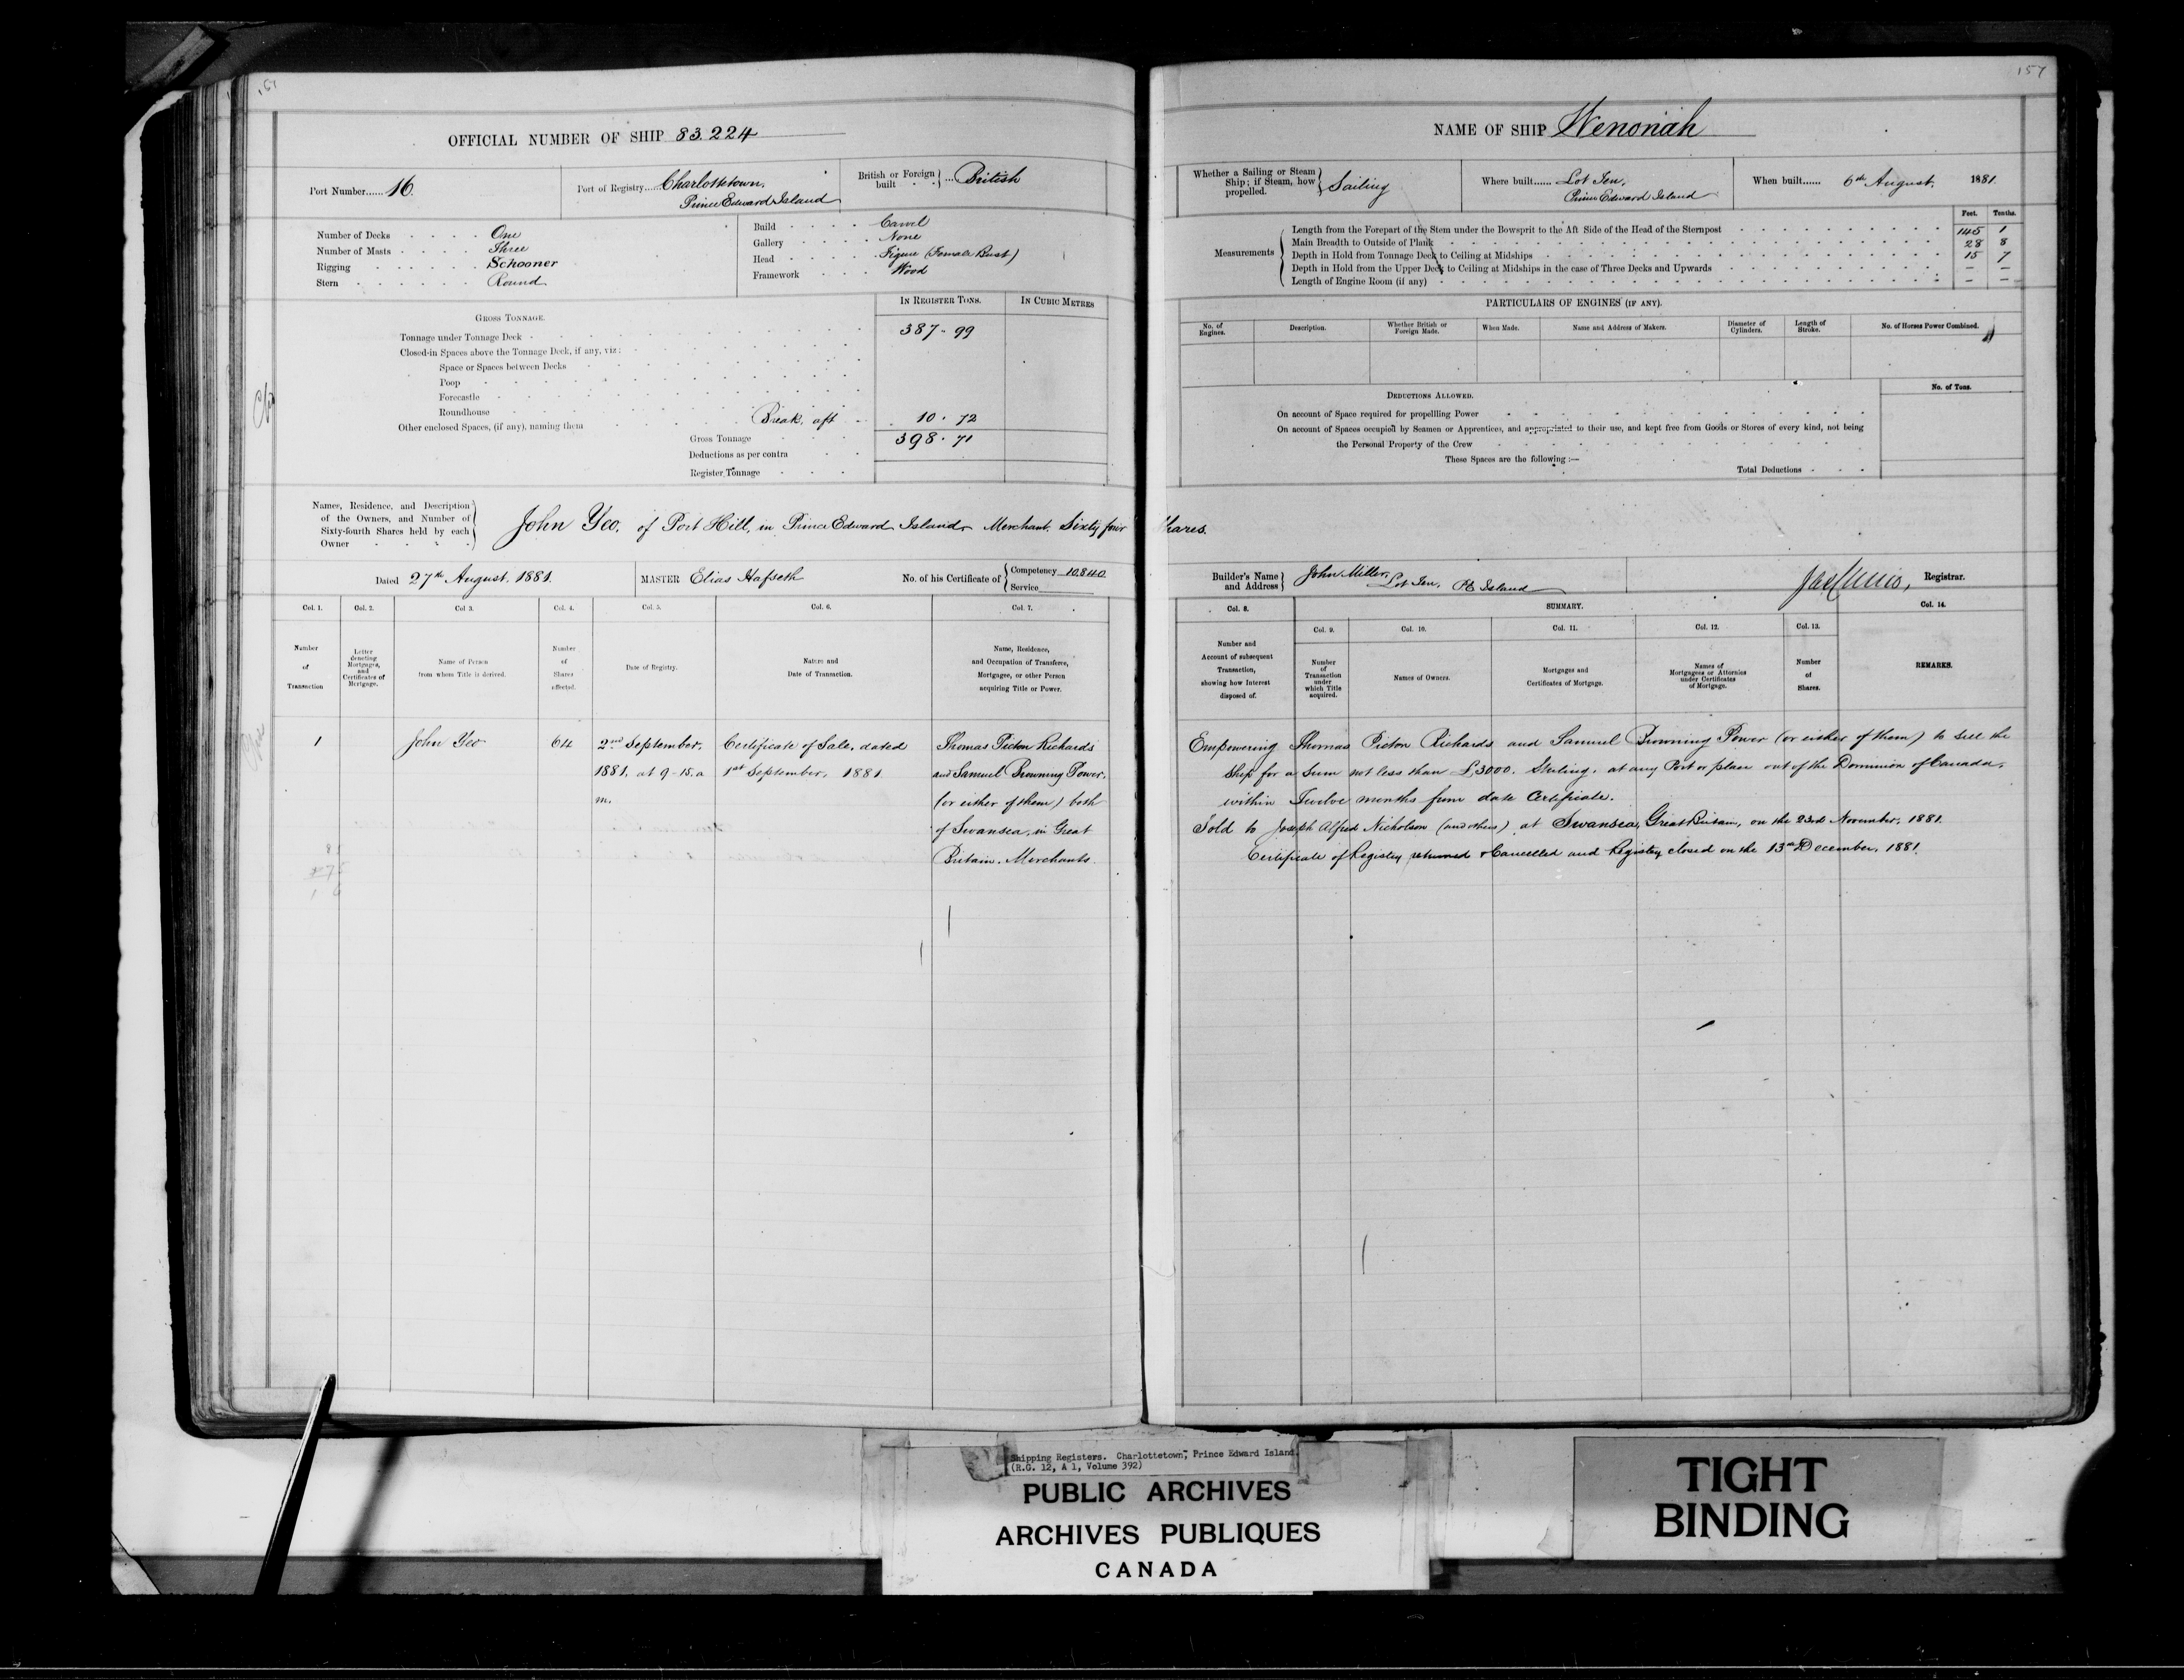 157
OFFICIAL NUMBER OF SHIP 83.224
Port Number...... 16.
Port of Registry.... Charlottetown,
Prince Edward Island
British or Foreign built ... British
Number of Decks One
Number of Masts Three
Rigging Schooner
Stern Round
Build Carvel
Gallery None
Head Figure (Female Bust)
Framework Wood
IN REGISTER TONS. IN CUBIC METRES
GROSS TONNAGE.
Tonnage under Tonnage Deck 387 · 99
Closed-in Spaces above the Tonnage Deck, if any, viz:
Space or Spaces between Decks
Poop
Forecastle
Roundhouse
Other enclosed Spaces, (if any), naming them Break, aft 10 · 72
Gross Tonnage 398 · 71
Deductions as per contra
Register Tonnage
Names, Residence, and Description
of the Owners, and Number of
Sixty-fourth Shares held by each
Owner
John Yeo, of Port Hill, in Prince Edward Island Merchant. Sixty four Shares.
Dated 27th August, 1881.
MASTER Elias Hafseth
No. of his Certificate of Competency 10,840
Service
Col. 1. Col. 2. Col 3. Col. 4. Col. 5. Col. 6. Col. 7.
Number
of
Transaction
Letter
denoting
Mortgages,
and
Certificates of
Mortgage.
Name of Person
from whom Title is derived.
Number
of
Shares
affected.
Date of Registry.
Nature and
Date of Transaction.
Name, Residence,
and Occupation of Transferee,
Mortgagee, or other Person
acquiring Title or Power.
1
John Yeo
64
2nd September,
1881, at 9-15. a
m.
Certificate of Sale, dated
1st September, 1881.
Thomas Picton Richards
and Samuel Browning Power,
(or either of them) both
of Swansea, in Great
Britain. Merchants.
157
NAME OF SHIP Wenonah
Whether a Sailing or Steam
Ship; if Steam, how
propelled.
Sailing
Where built...... Lot Ten,
Prince Edward Island
When built...... 6th August, 1881.
Feet. Tenths.
Measurements
Length from the Forepart of the Stem under the Bowsprit to the Aft Side of the Head of the Sternpost 145 1
Main Breadth to Outside of Plank 28 8
Depth in Hold from Tonnage Deck to Ceiling at Midships 15 7
Depth in Hold from the Upper Deck to Ceiling at Midships in the case of Three Decks and Upwards — —
Length of Engine Room (if any) — —
PARTICULARS OF ENGINES (IF ANY).
No. of Engines. Description. Whether British or Foreign Made. When Made. Name and Address of Makers. Diameter of Cylinders. Length of Stroke. No. of Horses Power Combined.
No. of Tons.
DEDUCTIONS ALLOWED.
On account of Space required for propellling Power
On account of Spaces occupied by Seamen or Apprentices, and appropriated to their use, and kept free from Goods or Stores of every kind, not being
the Personal Property of the Crew
These Spaces are the following :—
Total Deductions
Builder's Name
and Address
John Miller,
Lot Ten, P E Island
Registrar.
Col. 8. SUMMARY. Col. 14.
Col. 9. Col. 10. Col. 11. Col. 12. Col. 13.
Number and
Account of subsequent
Transaction,
showing how Interest
disposed of.
Number
of
Transaction
under
which Title
acquired.
Names of Owners.
Mortgages and
Certificates of Mortgage.
Names of
Mortgagees or Attornies
under Certificates
of Mortgage.
Number
of
Shares.
REMARKS.
Empowering Thomas Picton Richards and Samuel Browning Power (or either of them) to sell the
Ship for a Sum not less than £3000. Sterling, at any Port or place out of the Dominion of Canada,
within Twelve months from date Certificate.
Sold to Joseph Alfred Nicholson (and others) at Swansea, Great Britain, on the 23rd November, 1881.
Certificate of Registry returned & Cancelled and Registry closed on the 13th December, 1881.
Shipping Registers. Charlottetown, Prince Edward Island.
(R.G. 12, A 1, Volume 392)
PUBLIC ARCHIVES
ARCHIVES PUBLIQUES
CANADA
TIGHT
BINDING